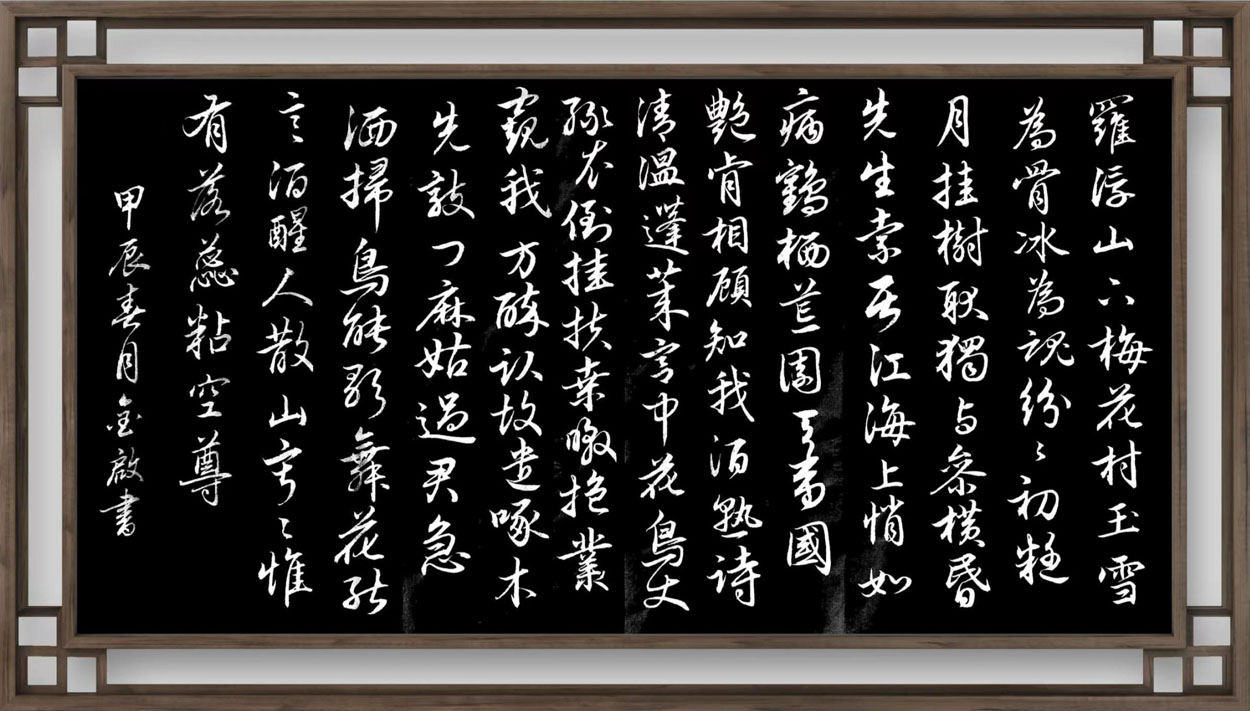 羅浮山下梅花村玉雪
為骨冰為魂紛々初疑
月挂樹耿獨与參横昏
先生索居江海上悄如
病鶴栖荒園天香國
艷肯相顧知我酒熟詩
清溫蓬莱宫中花鳥使
緑衣倒挂扶桒暾抱叢
窺我方醉卧故遣啄木
先敲门麻姑過君急
洒掃鳥能歌舞花能
言酒醒人散山寂々惟
有落蕊粘空尊
甲辰春月金啟書